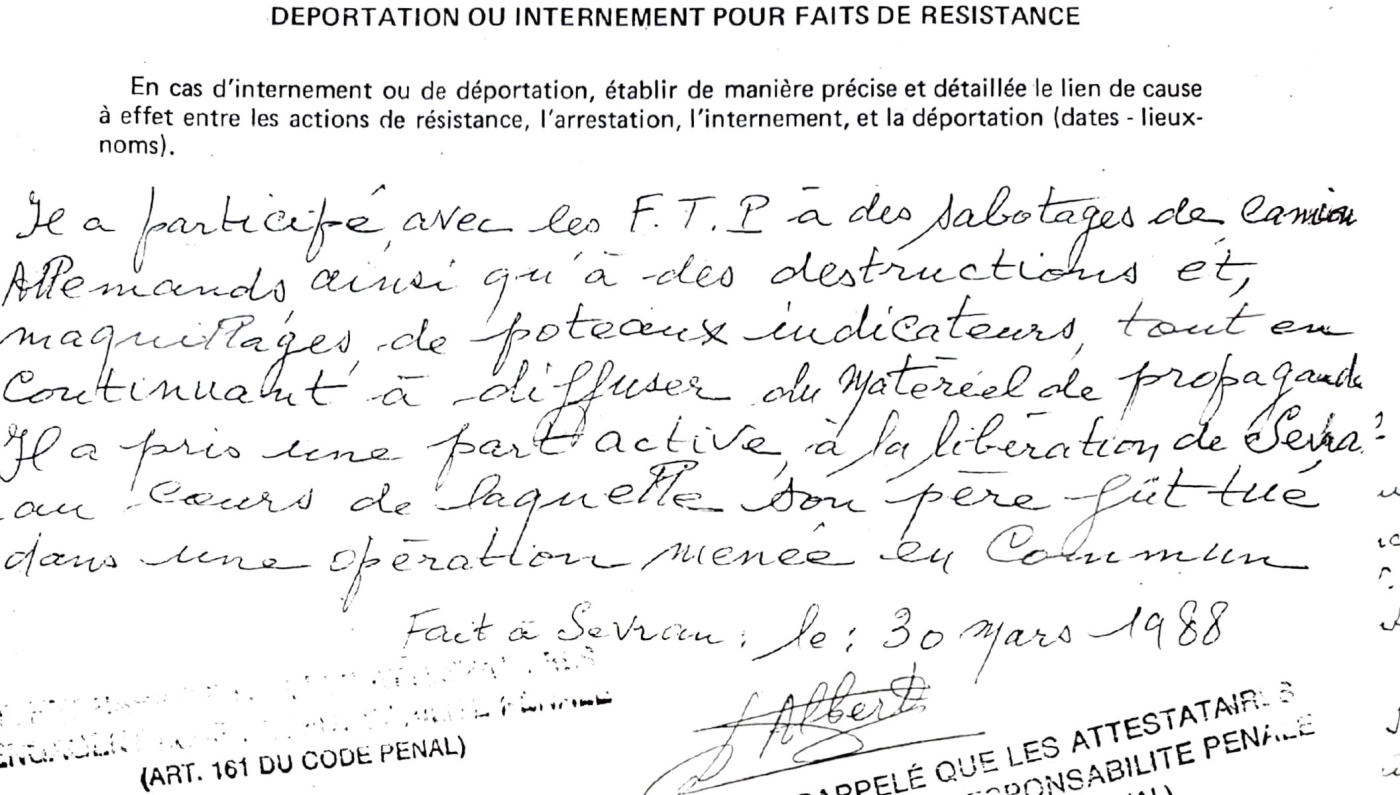 DEPORTATION OU INTERNEMENT POUR FAITS DE RESISTANCE
En cas d'internement ou de déportation, établir de manière précise et détaillée le lien de cause
à effet entre les actions de résistance, l'arrestation, l'internement, et la déportation (dates - lieux-
noms).
Il a participé, avec les F.T.P à des sabotages de camion
Allemands ainsi qu'à des destructions et,
maquillages, de poteaux indicateurs, tout en
continuant à diffuser du matéreel de propagande
Il a pris une part active, à la libération de Sevra
au cours de laquelle son père fût tué
dans une opération menée en Commun
Fait à Sevran : le : 30 mars 1988
Albert
(ART. 161 DU CODE PENAL)
RAPPELÉ QUE LES ATTESTATAIRES
RESPONSABILITE PENALE